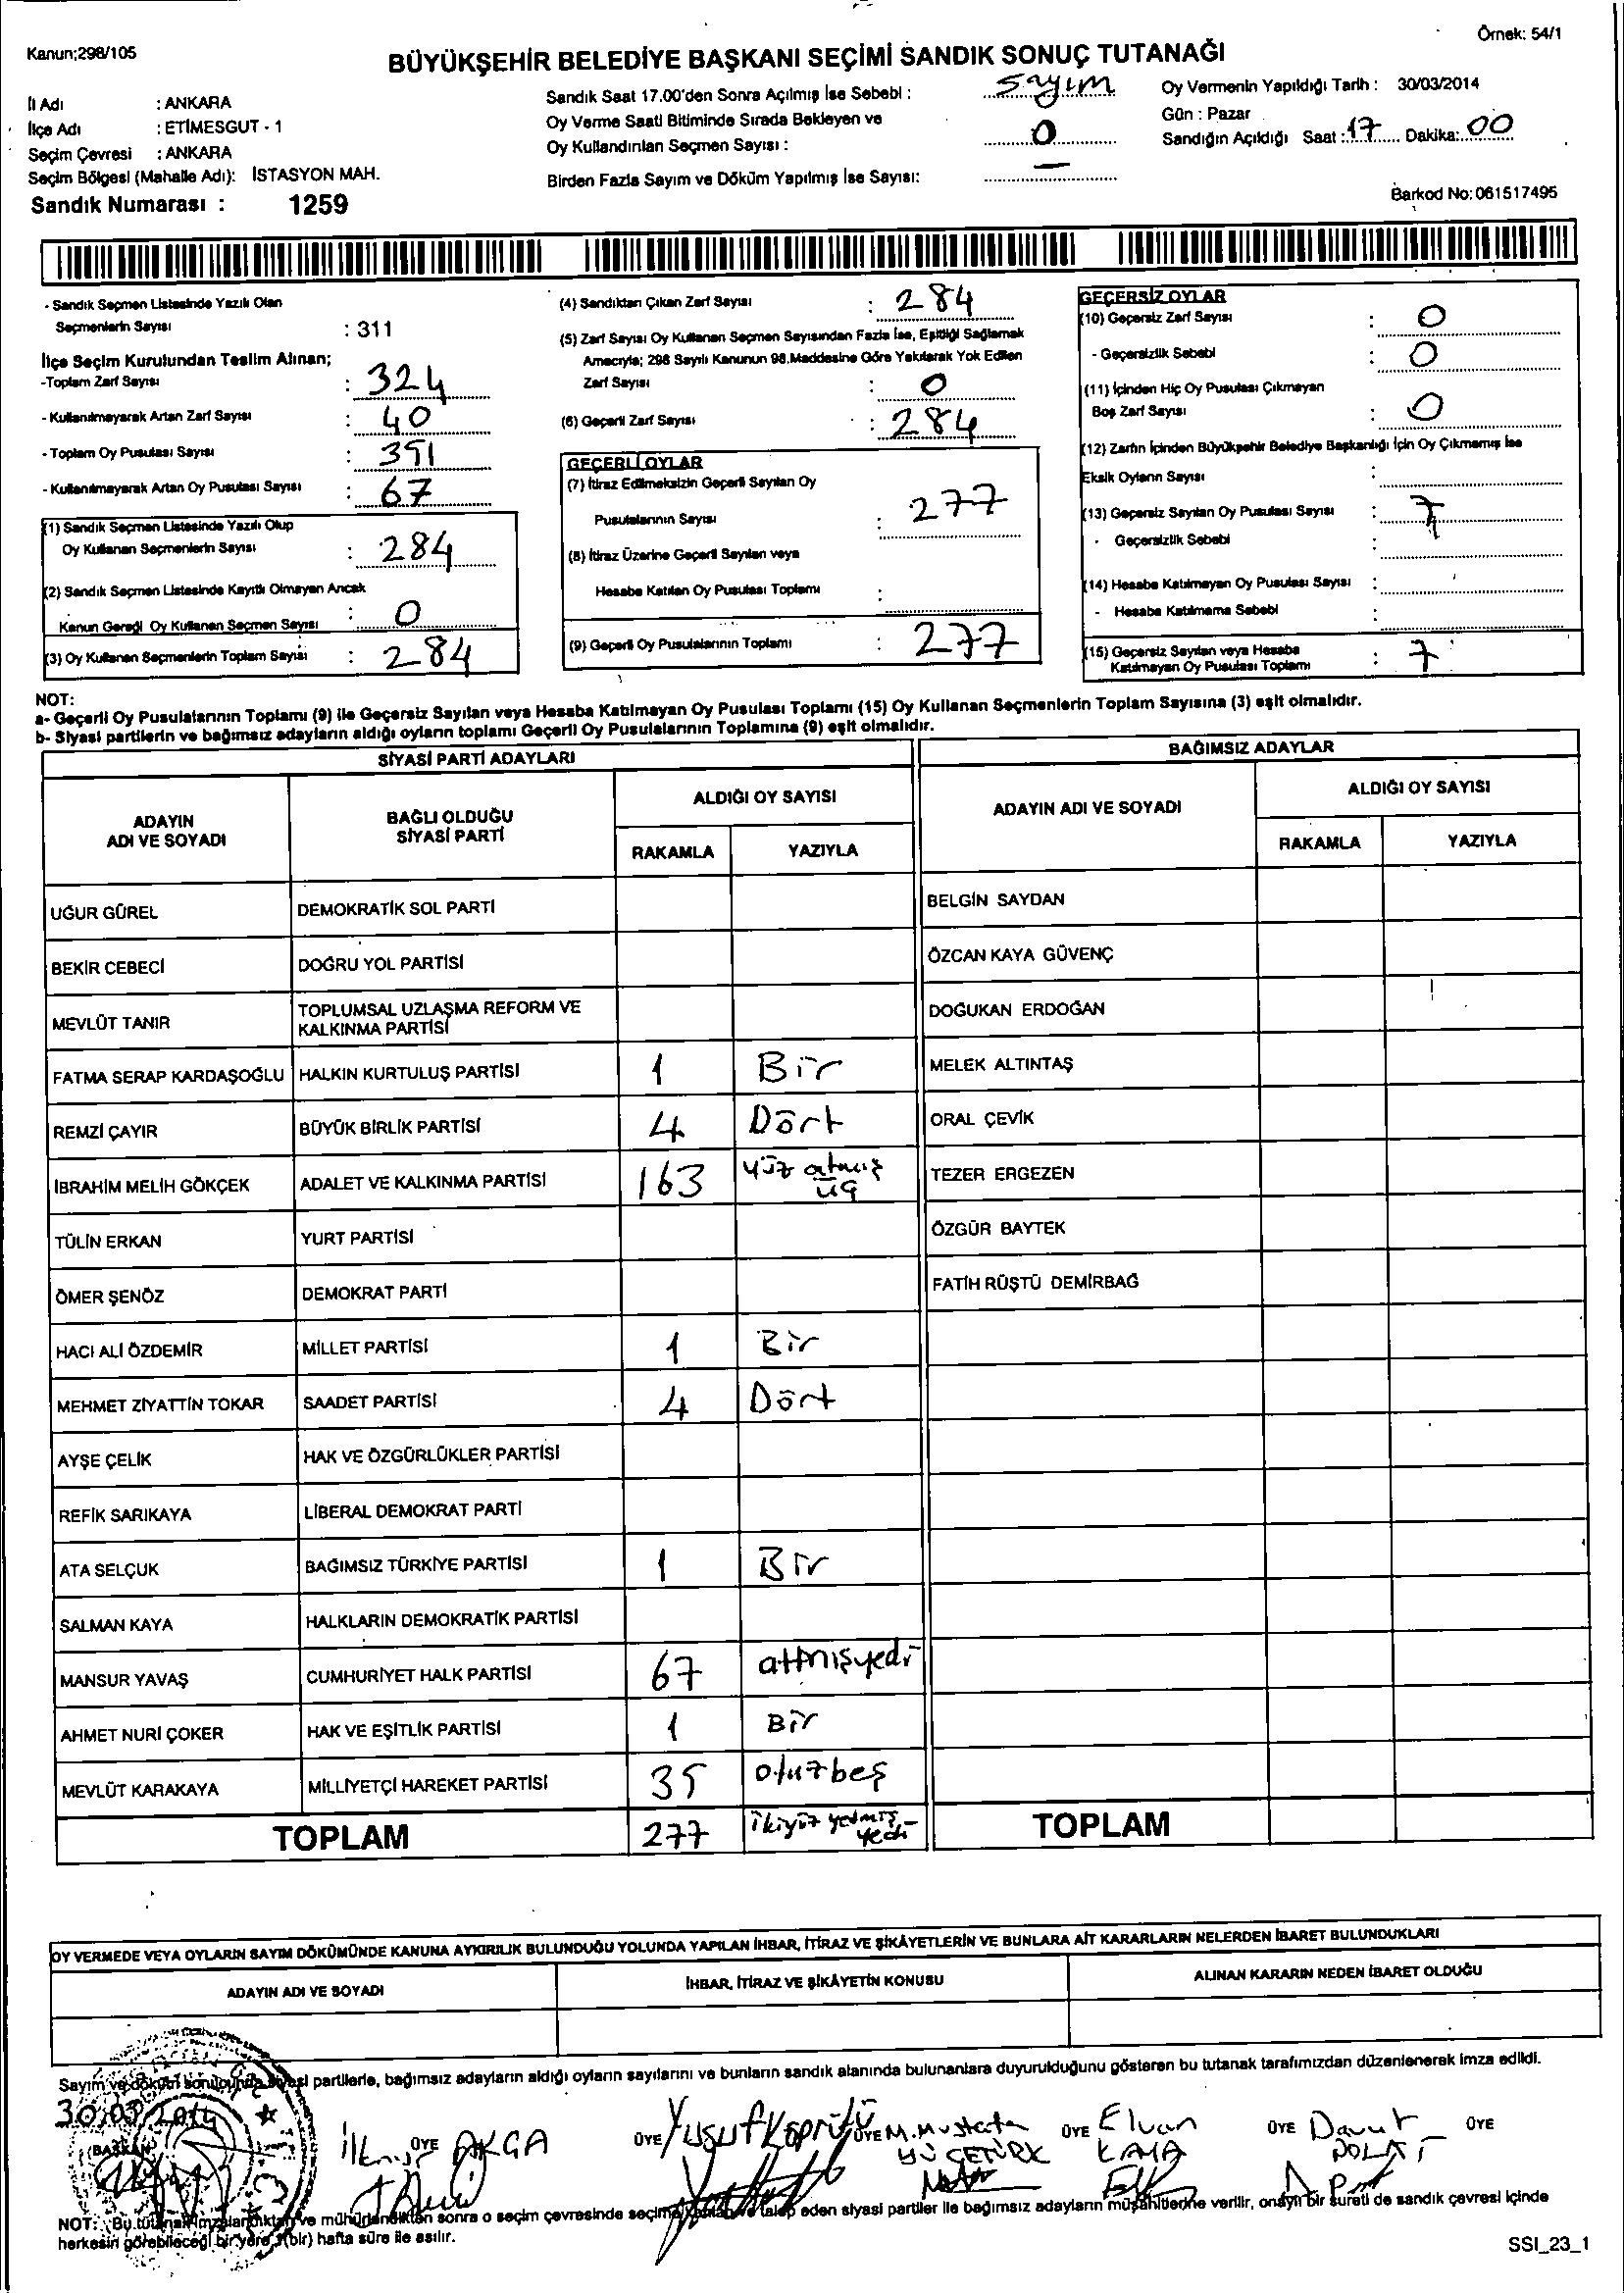 Örnek: 54/1
Kanun;298/105
BÜYÜKŞEHİR BELEDİYE BAŞKANI SEÇİMİ SANDIK SONUÇ TUTANAĞI
İl Adı : ANKARA
İlçe Adı : ETİMESGUT - 1
Seçim Çevresi : ANKARA
Seçim Bölgesi (Mahalle Adı): İSTASYON MAH.
Sandık Numarası : 1259
Sandık Saat 17.00'den Sonra Açılmış İse Sebebi : Sayım
Oy Verme Saati Bitiminde Sırada Bekleyen ve
Oy Kullandırılan Seçmen Sayısı : 0
Birden Fazla Sayım ve Döküm Yapılmış İse Sayısı: —
Oy Vermenin Yapıldığı Tarih : 30/03/2014
Gün : Pazar
Sandığın Açıldığı Saat : 17 Dakika: 00
Barkod No: 061517495
- Sandık Seçmen Listesinde Yazılı Olan
Seçmenlerin Sayısı : 311
İlçe Seçim Kurulundan Teslim Alınan;
-Toplam Zarf Sayısı : 324
- Kullanılmayarak Artan Zarf Sayısı : 40
- Toplam Oy Pusulası Sayısı : 351
- Kullanılmayarak Artan Oy Pusulası Sayısı : 67
(1) Sandık Seçmen Listesinde Yazılı Olup
Oy Kullanan Seçmenlerin Sayısı : 284
(2) Sandık Seçmen Listesinde Kayıtlı Olmayan Ancak
Kanun Gereği Oy Kullanan Seçmen Sayısı : 0
(3) Oy Kullanan Seçmenlerin Toplam Sayısı : 284
(4) Sandıktan Çıkan Zarf Sayısı : 284
(5) Zarf Sayısı Oy Kullanan Seçmen Sayısından Fazla İse, Eşitliği Sağlamak
Amacıyla; 298 Sayılı Kanunun 98.Maddesine Göre Yakılarak Yok Edilen
Zarf Sayısı : 0
(6) Geçerli Zarf Sayısı : 284
GEÇERLİ OYLAR
(7) İtiraz Edilmeksizin Geçerli Sayılan Oy
Pusulalarının Sayısı : 277
(8) İtiraz Üzerine Geçerli Sayılan veya
Hesaba Katılan Oy Pusulası Toplamı :
(9) Geçerli Oy Pusulalarının Toplamı : 277
GEÇERSİZ OYLAR
(10) Geçersiz Zarf Sayısı : 0
- Geçersizlik Sebebi : 0
(11) İçinden Hiç Oy Pusulası Çıkmayan
Boş Zarf Sayısı : 0
(12) Zarfın İçinden Büyükşehir Belediye Başkanlığı İçin Oy Çıkmamış İse
Eksik Oyların Sayısı :
(13) Geçersiz Sayılan Oy Pusulası Sayısı : 7
- Geçersizlik Sebebi :
(14) Hesaba Katılmayan Oy Pusulası Sayısı :
- Hesaba Katılmama Sebebi :
(15) Geçersiz Sayılan veya Hesaba
Katılmayan Oy Pusulası Toplamı : 7
NOT:
a- Geçerli Oy Pusulalarının Toplamı (9) ile Geçersiz Sayılan veya Hesaba Katılmayan Oy Pusulası Toplamı (15) Oy Kullanan Seçmenlerin Toplam Sayısına (3) eşit olmalıdır.
b- Siyasi partilerin ve bağımsız adayların aldığı oyların toplamı Geçerli Oy Pusulalarının Toplamına (9) eşit olmalıdır.
SİYASİ PARTİ ADAYLARI
ADAYIN
ADI VE SOYADI
BAĞLI OLDUĞU
SİYASİ PARTİ
ALDIĞI OY SAYISI
RAKAMLA YAZIYLA
UĞUR GÜREL DEMOKRATİK SOL PARTİ
BEKİR CEBECİ DOĞRU YOL PARTİSİ
MEVLÜT TANIR TOPLUMSAL UZLAŞMA REFORM VE
KALKINMA PARTİSİ
FATMA SERAP KARDAŞOĞLU HALKIN KURTULUŞ PARTİSİ 1 Bir
REMZİ ÇAYIR BÜYÜK BİRLİK PARTİSİ 4 Dört
İBRAHİM MELİH GÖKÇEK ADALET VE KALKINMA PARTİSİ 163 yüz atmış
üç
TÜLİN ERKAN YURT PARTİSİ
ÖMER ŞENÖZ DEMOKRAT PARTİ
HACI ALİ ÖZDEMİR MİLLET PARTİSİ 1 Bir
MEHMET ZİYATTİN TOKAR SAADET PARTİSİ 4 Dört
AYŞE ÇELİK HAK VE ÖZGÜRLÜKLER PARTİSİ
REFİK SARIKAYA LİBERAL DEMOKRAT PARTİ
ATA SELÇUK BAĞIMSIZ TÜRKİYE PARTİSİ 1 Bir
SALMAN KAYA HALKLARIN DEMOKRATİK PARTİSİ
MANSUR YAVAŞ CUMHURİYET HALK PARTİSİ 67 atmışyedi
AHMET NURİ ÇOKER HAK VE EŞİTLİK PARTİSİ 1 Bir
MEVLÜT KARAKAYA MİLLİYETÇİ HAREKET PARTİSİ 35 otuzbeş
TOPLAM 277 ikiyüz yetmiş
yedi
BAĞIMSIZ ADAYLAR
ADAYIN ADI VE SOYADI
ALDIĞI OY SAYISI
RAKAMLA YAZIYLA
BELGİN SAYDAN
ÖZCAN KAYA GÜVENÇ
DOĞUKAN ERDOĞAN
MELEK ALTINTAŞ
ORAL ÇEVİK
TEZER ERGEZEN
ÖZGÜR BAYTEK
FATİH RÜŞTÜ DEMİRBAĞ
TOPLAM
OY VERMEDE VEYA OYLARIN SAYIM DÖKÜMÜNDE KANUNA AYKIRILIK BULUNDUĞU YOLUNDA YAPILAN İHBAR, İTİRAZ VE ŞİKÂYETLERİN VE BUNLARA AİT KARARLARIN NELERDEN İBARET BULUNDUKLARI
ADAYIN ADI VE SOYADI İHBAR, İTİRAZ VE ŞİKÂYETİN KONUSU ALINAN KARARIN NEDEN İBARET OLDUĞU
Sayım ve döküm sonucunda siyasi partilerle, bağımsız adayların aldığı oyların sayılarını ve bunların sandık alanında bulunanlara duyurulduğunu gösteren bu tutanak tarafımızdan düzenlenerek imza edildi.
30/03/2014
BAŞKAN ÜYE AKGA ÜYE Yusuf Köprülü ÜYE M. Mustafa ÜYE Elvan ÜYE Davut ÜYE
YÜCETÜRK KAYA POLAT
NOT: Bu tutanak imzalandıktan ve mühürlendikten sonra o seçim çevresinde seçime katılan ve talep eden siyasi partiler ile bağımsız adayların müşahitlerine verilir, onaylı bir sureti de sandık çevresi içinde
herkesin görebileceği bir yere 1(bir) hafta süre ile asılır.
SSI_23_1